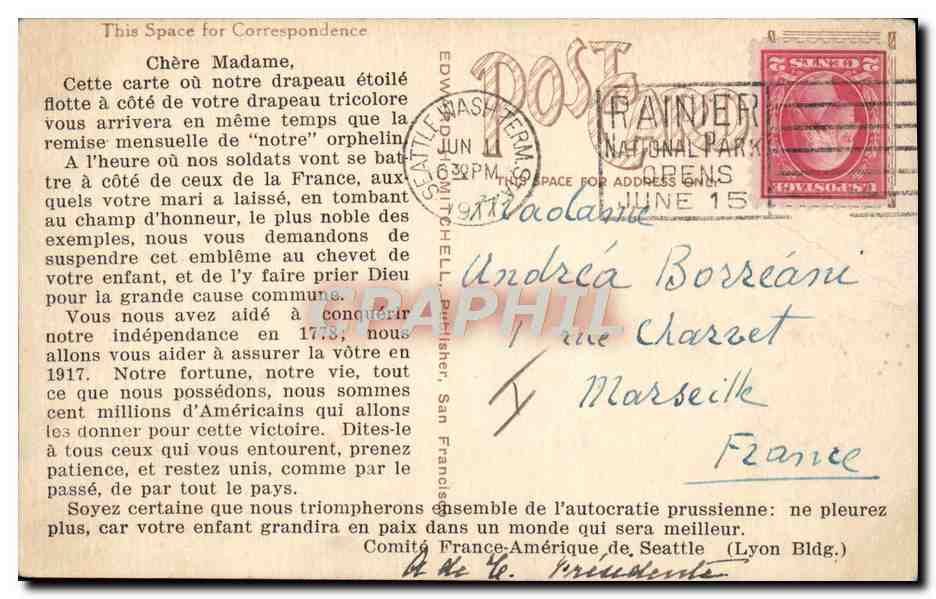 This Space for Correspondence
Chère Madame,
Cette carte où notre drapeau étoilé
flotte à côté de votre drapeau tricolore
vous arrivera en même temps que la
remise mensuelle de "notre" orphelin.
A l'heure où nos soldats vont se bat-
tre à côté de ceux de la France, aux-
quels votre mari a laissé, en tombant
au champ d'honneur, le plus noble des
exemples, nous vous demandons de
suspendre cet emblême au chevet de
votre enfant, et de l'y faire prier Dieu
pour la grande cause commune.
Vous nous avez aidé à conquérir
notre indépendance en 1778; nous
allons vous aider à assurer la vôtre en
1917. Notre fortune, notre vie, tout
ce que nous possédons, nous sommes
cent millions d'Américains qui allons
les donner pour cette victoire. Dites-le
à tous ceux qui vous entourent, prenez
patience, et restez unis, comme par le
passé, de par tout le pays.
Soyez certaine que nous triompherons ensemble de l'autocratie prussienne: ne pleurez
plus, car votre enfant grandira en paix dans un monde qui sera meilleur.
Comité France-Amérique de Seattle (Lyon Bldg.)
Présidente
EDWARD H. MITCHELL, Publisher, San Francisco
POST
CARD
THIS SPACE FOR ADDRESS ONLY
SEATTLE, WASH. TERM. STA.
JUN
6 30 PM
1917
RAINIER
NATIONAL PARK
OPENS
JUNE 15
U.S. POSTAGE
2 CENTS 2
Madame
Andréa Borréani
1 rue Charvet
Marseille
France
CPAPHIL